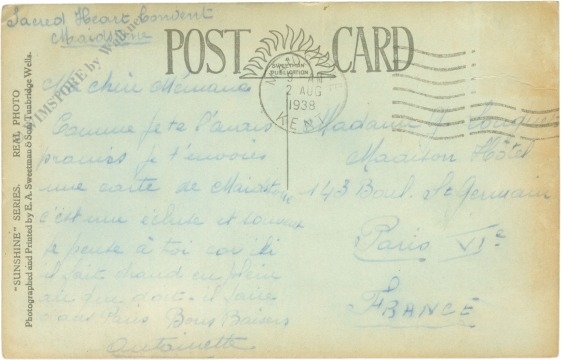 Sacred Heart Convent
Maidstone
VIMSTORE by Wolk
POST CARD
SWEETMAN
PUBLICATION
2 AUG
1938
KENT
"SUNSHINE" SERIES. REAL PHOTO
Photographed and Printed by E. A. Sweetman & Son, Tunbridge Wells.
Ma chère Mémaine
Comme je te l'avais
promis je t'envoies
une carte de Maidstone
c'est une écluse et souvent
je pense à toi car ici
il fait chaud en plein
air
dans Paris Bons Baisers
Antoinette
Madame
Maaison Hôtel
143 Boul. St Germain
Paris VIe
FRANCE